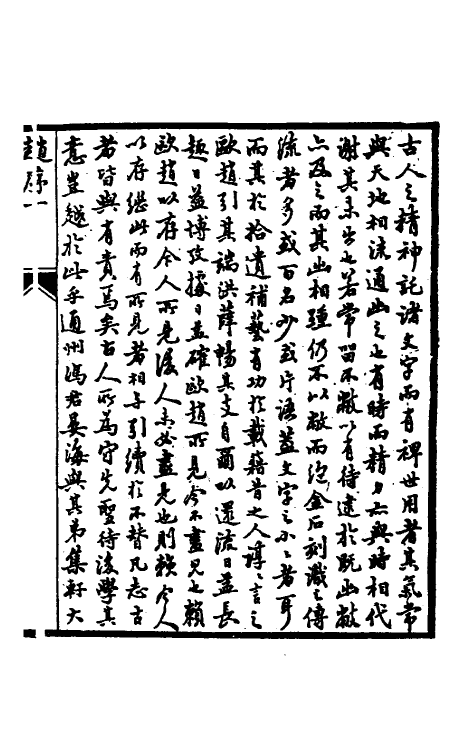 古人之精神託諸文字而有裨世用者其氣常
與天地相流通幽之也有時而精力亦與時相代
謝其未出也若常留不敝以有待逮於既幽敝
亦及之而其幽相踵仍不以敝而絕金石刻識之傳
流者多或百名少或片語蓋文字之小小者耳
而其於拾遺補藝有功於載籍昔之人諄諄言之
歐趙引其端洪薛暢其支自爾以還流日益長
趣日益博攷據日益確歐趙所見今不盡見也賴
歐趙以存今人所見後人未必盡見也則賴今人
以存繼此而有所見者相與引續於不替凡志古
者皆與有責焉矣古人所為守先聖待後學其
意豈越於此乎通州馮君晏海與其弟集軒大
趙序一